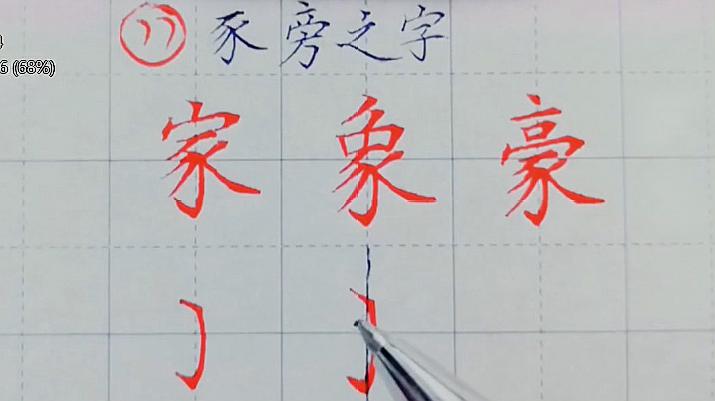 17 豕旁之字
6 (68%)
家 象 豪